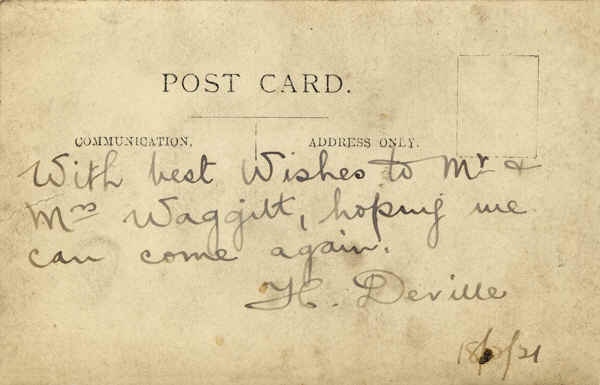 POST CARD.
COMMUNICATION.
ADDRESS ONLY.
With best Wishes to Mr &
Mrs Waggitt, hoping we
can come again.
H. Deville